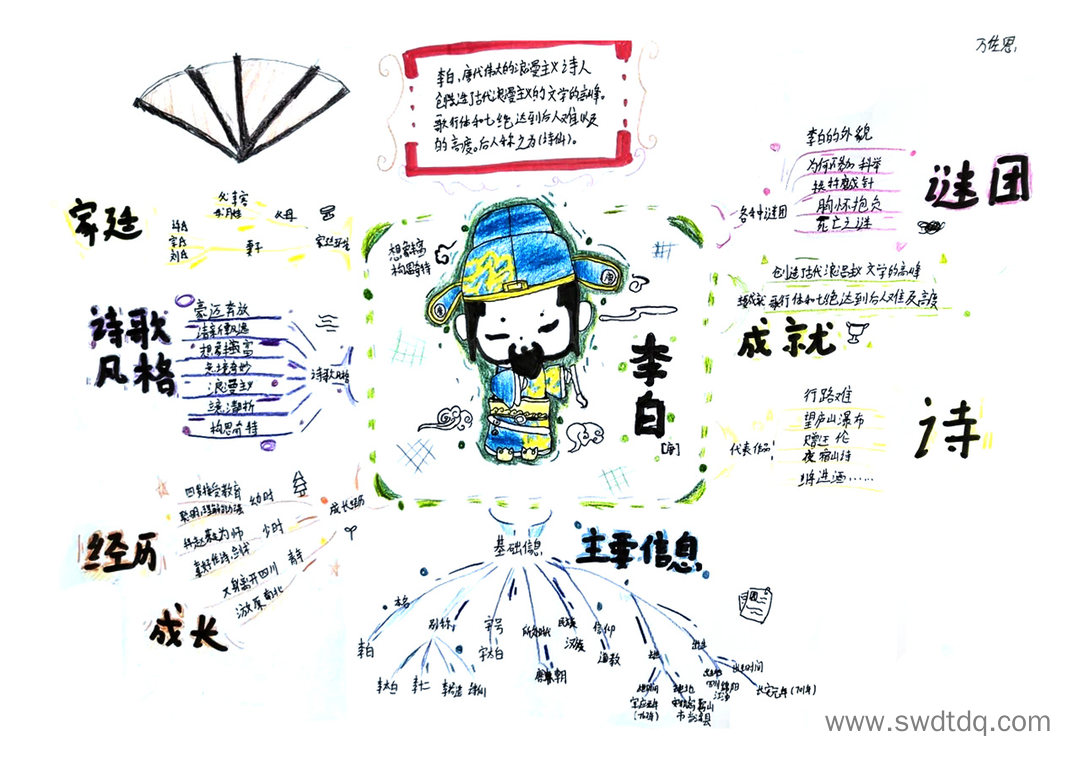 李白，唐代伟大的浪漫主义诗人
创造了古代浪漫主义的文学的高峰。
歌行体和七绝达到后人难以及
的高度。后人称之为(诗仙)。
家庭
父 李客
父母
许氏
宗氏
刘氏
妻子
诗歌
风格
豪迈奔放
清新飘逸
想象丰富
意境奇妙
浪漫主义
构思奇特
诗歌风格
想象丰富
构思奇特
李白
[唐]
各种谜团
李白的外貌
为何不参加科举
铁杵磨成针
胸怀抱负
死亡之谜
谜团
创造了古代浪漫主义文学的高峰
歌行体和七绝达到后人难及高度
成就
代表作品
行路难
望庐山瀑布
赠汪伦
夜宿山寺
将进酒……
诗
经历
成长
成长经历
幼时
少时
青年
喜好作诗、剑术
只身离开四川
基础信息
主要信息
本名
李白
别称
李太白
李十二
诗仙
字号
字太白
所处时代
唐朝
民族
汉族
信仰
道教
出生
出生时间
长安元年(701年)
www.swdtdq.com